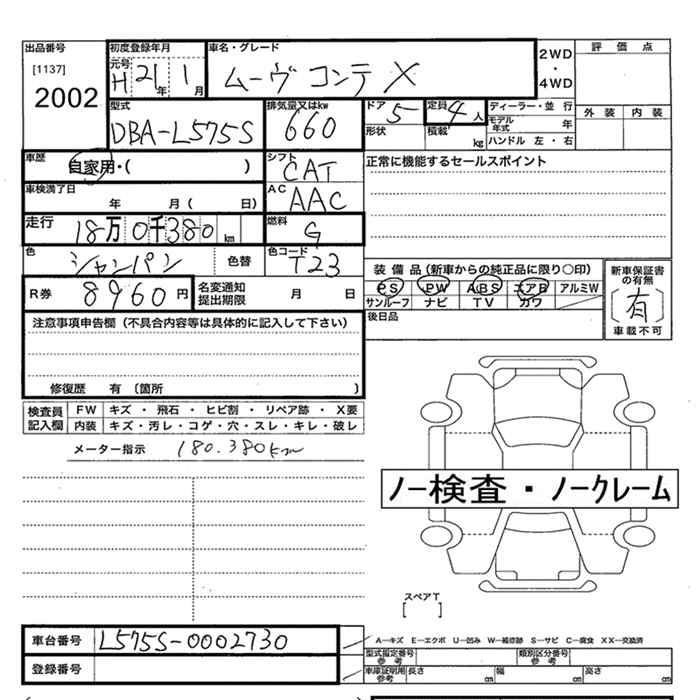 出品番号
[1137]
2002
初度登録年月
元号
H 21年 1月
車名・グレード
ムーヴ コンテ X
2WD
・
4WD
評価点
外装 内装
型式
DBA-L575S
排気量又はkw
660
ドア 5
形状
定員 4人
積載 kg
ディーラー・並 行
モデル年式 年
ハンドル 左・右
車歴
自家用・( )
シフト
CAT
正常に機能するセールスポイント
車検満了日
年 月( 日)
AC
AAC
走行
18万0千380km
燃料
G
色
シャンパン
色替
色コード
T23
装備品(新車からの純正品に限り○印)
PS PW ABS エアB アルミW
サンルーフ ナビ TV カワ
新車保証書の有無
〔有〕
車載不可
R券
8960円
名変通知
提出期限
月 日
後日品
注意事項申告欄(不具合内容等は具体的に記入して下さい)
修復歴 有〔箇所 )
検査員
記入欄
FW キズ ・ 飛石 ・ ヒビ割 ・ リペア跡 ・ X要
内装 キズ・汚レ・コゲ・穴・スレ・キレ・破レ
メーター指示 180.380km
ノー検査・ノークレーム
スペアT
[ ]
車台番号
L575S-0002730
A-キズ E-エクボ U-凹み W-補修跡 S-サビ C-腐食 XX-交換済
登録番号
型式指定番号
参考
類別区分番号
参考
車庫証明用
参考
長さ cm
幅 cm
高さ cm